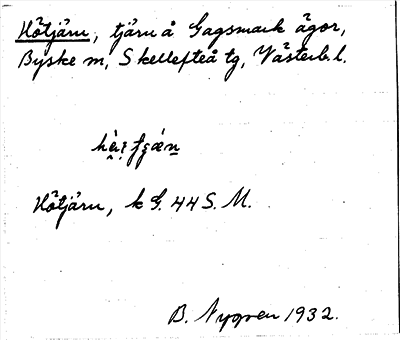 Hötjärn, tjärn å Gagsmark ägor,
Byske m, Skellefteå tg, Västerb. l.
Hötjärn, k G. 44 S. M.
B. Nygren 1932.